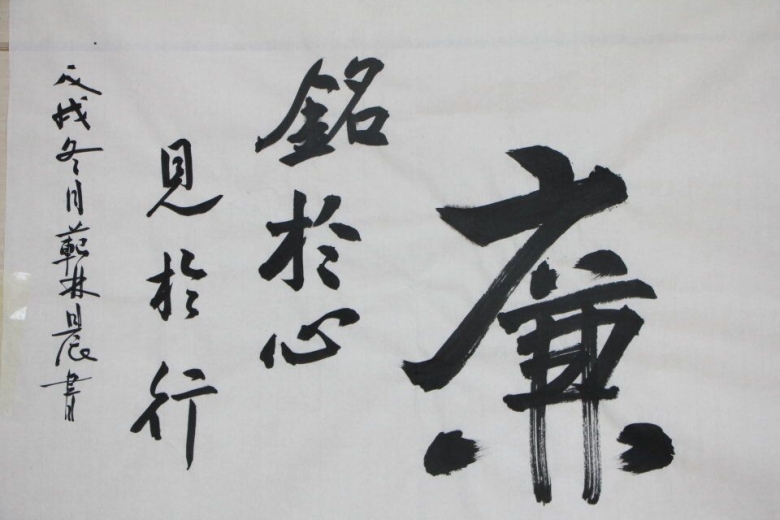 廉
銘於心
見於行
戊戌冬月范林晨書